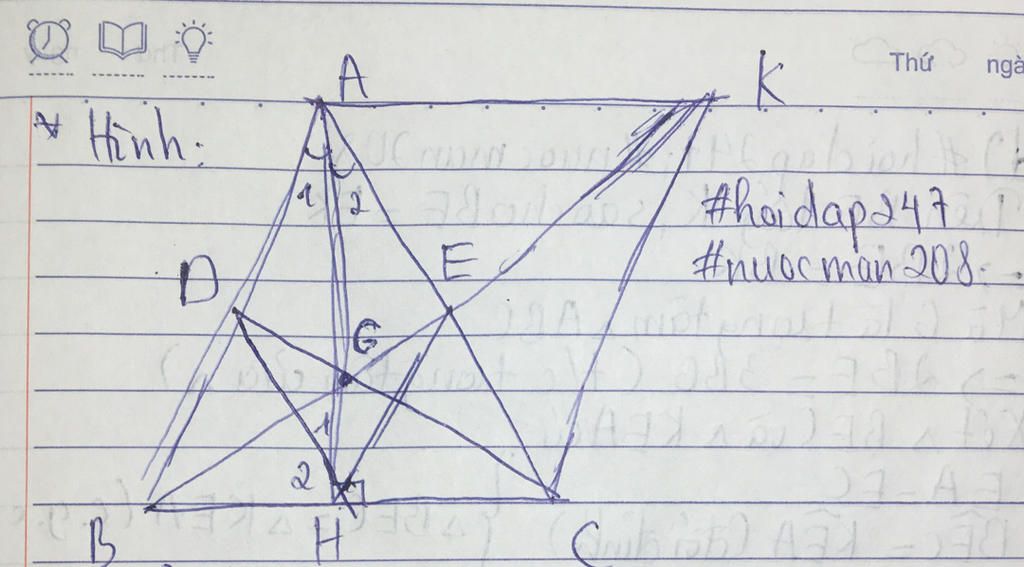 Thứ ngà
A K
* Hình:
1 2
#hoidap247
#nuocman208.
D E
G
1
2
B H C